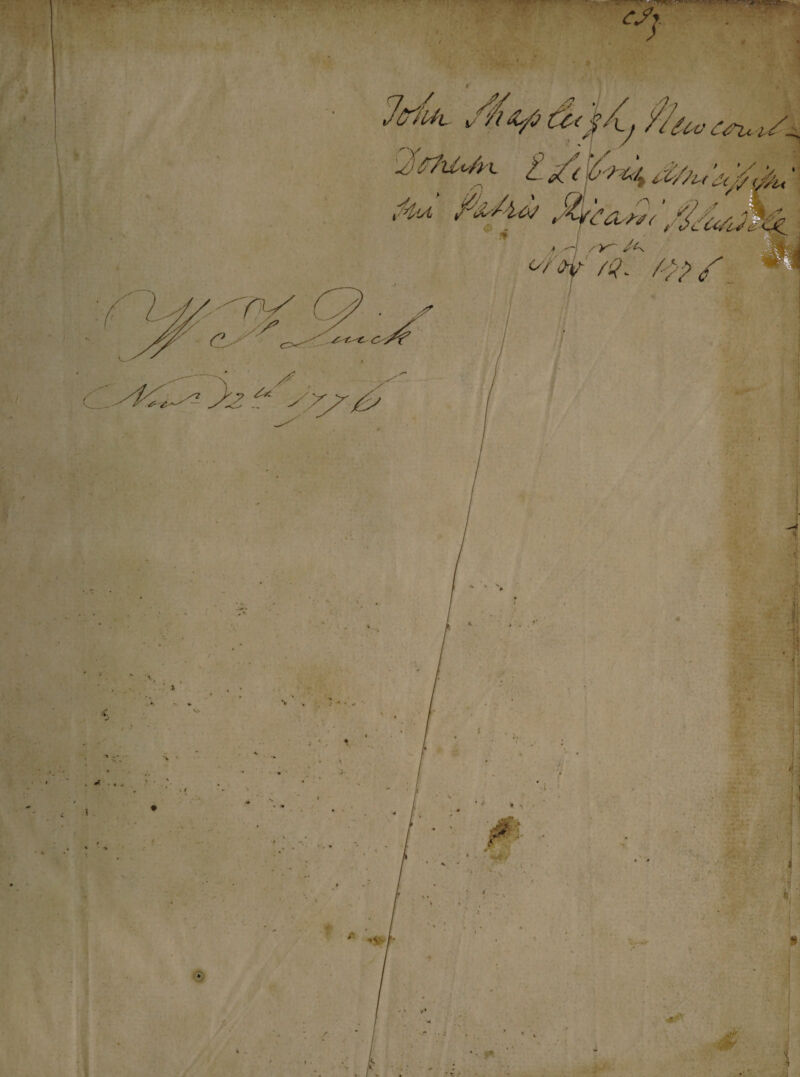 John Shapleigh, Newcourt
Donum E Libris amicissimi
sui Patris Ricardi Blundell
Novr 12th 1776
W F Quick
Novr 12th 1776